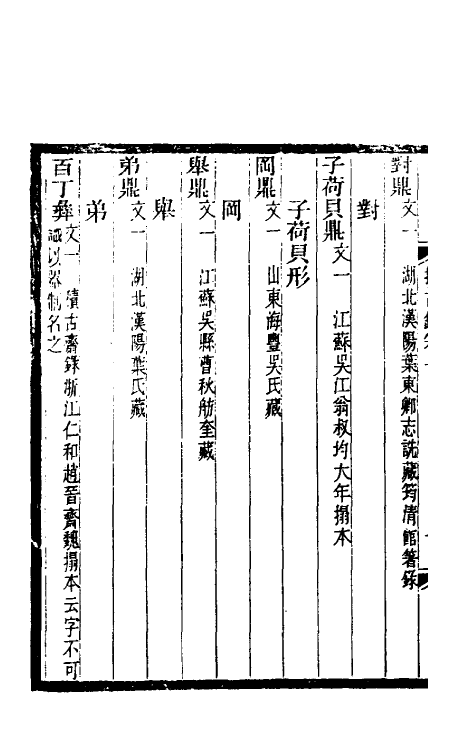 對鼎文一　湖北漢陽葉東卿志詵藏筠清館箸錄
對
子荷貝鼎文一　江蘇吳江翁叔均大年搨本
子荷貝形
岡鼎文一　山東海豐吳氏藏
岡
舉鼎文一　江蘇吳縣曹秋舫奎藏
舉
弟鼎文一　湖北漢陽葉氏藏
弟
百丁彝文一　積古齋錄浙江仁和趙晉齋魏搨本云字不可
識以器制名之